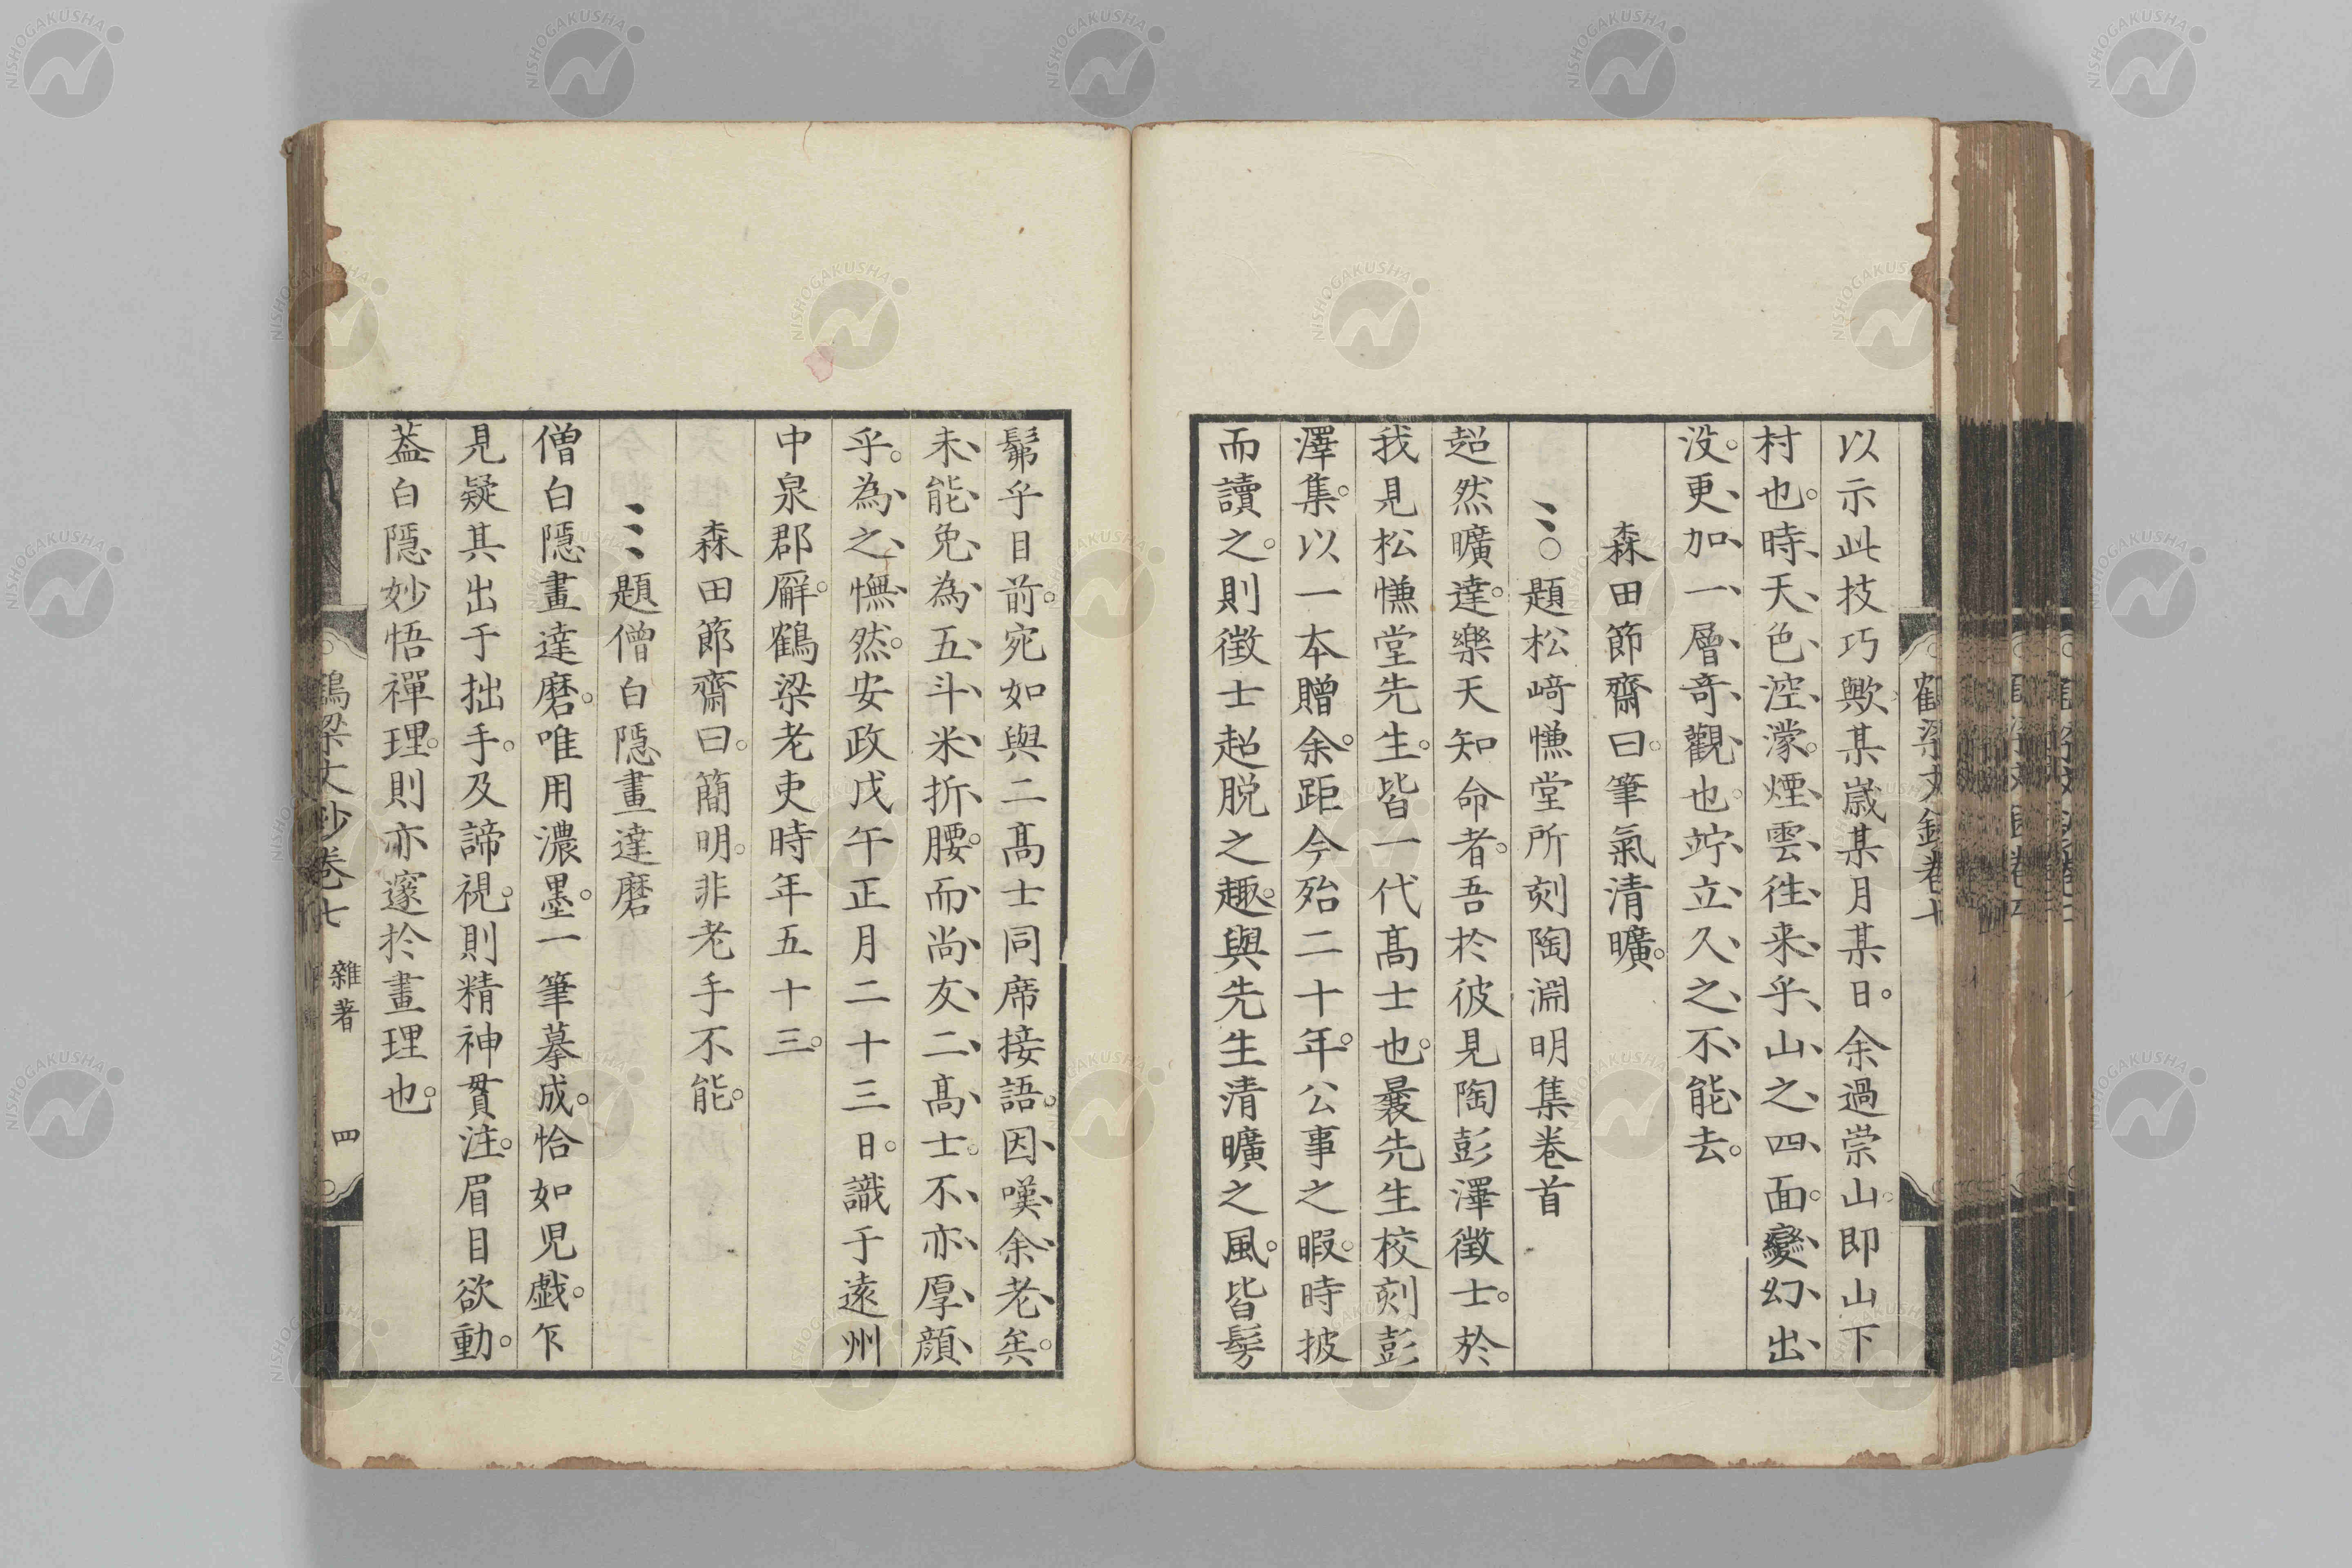 以示此技巧歟某歳某月某日。余過崇山。即山下
村也。時天色涳濛。煙雲往来乎山之四面。變幻出
没。更加一層奇觀也。竚立久之不能去。
森田節齋曰。筆氣清曠。
〇題松﨑慊堂所刻陶淵明集巻首
超然曠達。樂天知命者。吾於彼見陶彭澤徴士。於
我見松慊堂先生。皆一代髙士也。曩先生校刻彭
澤集。以一本贈余。距今殆二十年。公事之暇。時披
而讀之。則徴士超脱之趣。與先生清曠之風。皆髣
髴乎目前。宛如與二髙士同席接語。因嘆余老矣。
未能免為五斗米折腰。而尚友二髙士。不亦厚顔
乎。為之憮然。安政戊午正月二十三日。識于遠州
中泉郡廨。鶴梁老吏時年五十三。
森田節齋曰。簡明。非老手不能。
題僧白隠畫達磨
僧白隠畫達磨。唯用濃墨。一筆摹成。恰如児戯。乍
見疑其出于拙手。及諦視。則精神貫注。眉目欲動。
葢白隠妙悟禪理。則亦邃於畫理也。
鶴梁文鈔巻七 雜著 四
NISHOGAKUSHA